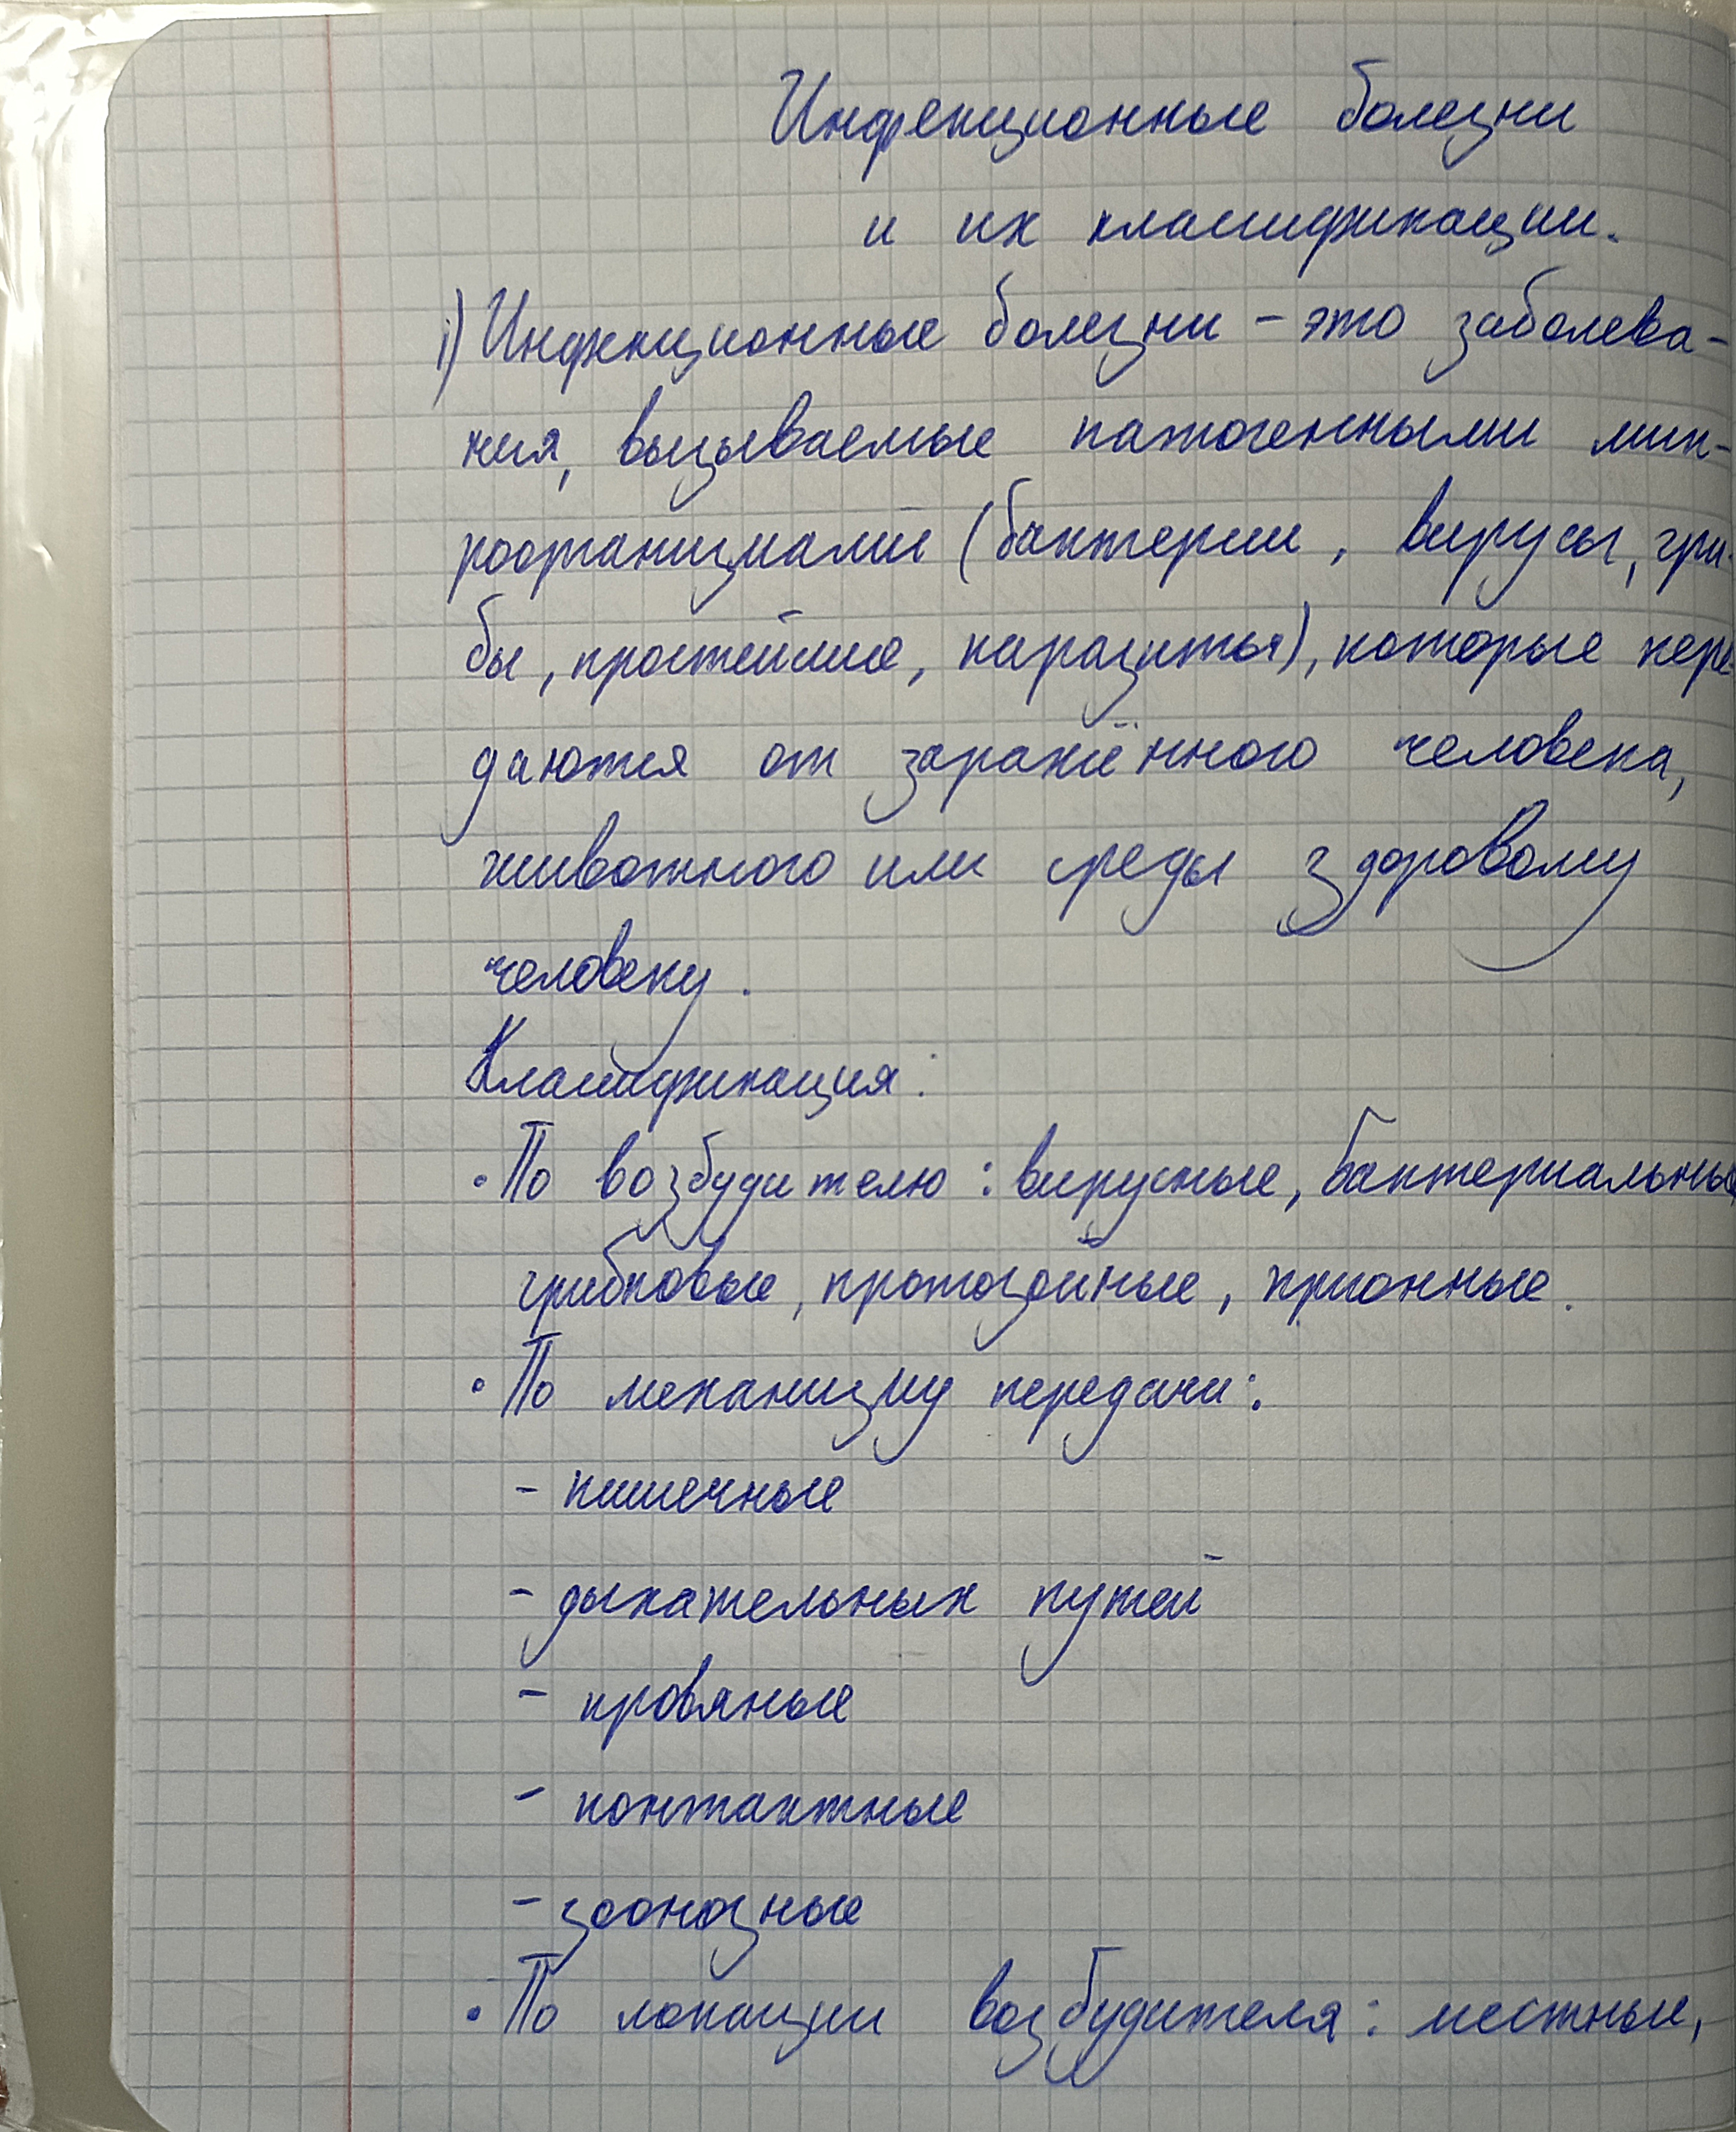 Инфекционные болезни
и их классификации.
1) Инфекционные болезни – это заболева-
ния, вызываемые патогенными мик-
роорганизмами (бактерии, вирусы, гри
бы, простейшие, паразиты), которые пере
даются от заражённого человека,
животного или среды здоровому
человеку.
Классификация:
• По возбудителю: вирусные, бактериальные
грибковые, протозойные, прионные.
• По механизму передачи:
- кишечные
- дыхательных путей
- кровяные
- контактные
- зоонозные
• По локации возбудителя: местные,